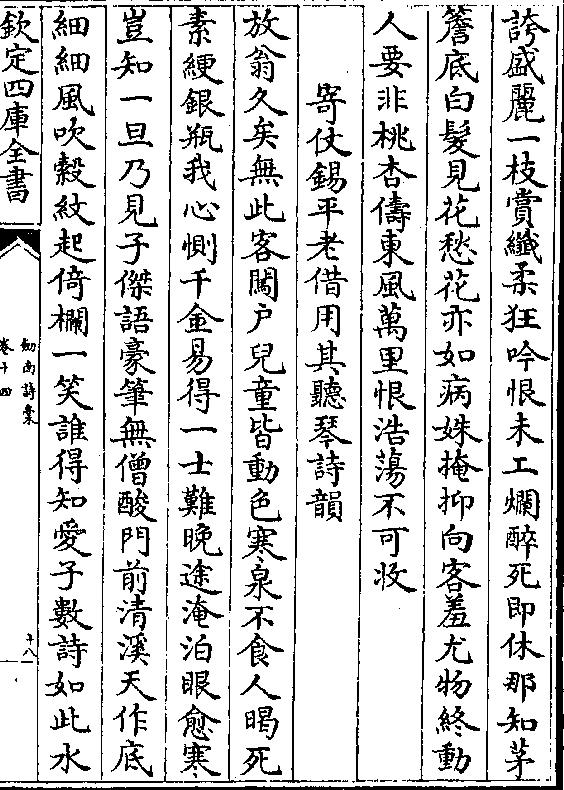 誇盛麗一枝賞纎柔狂吟恨未工爛醉死即休那知茅
簷底白髮見花愁花亦如病姝掩抑向客羞尤物終動
人要非桃杏儔東風萬里恨浩蕩不可收
寄仗錫平老借用其聽琴詩韻
放翁久矣無此客闖户兒童皆動色寒泉不食人暍死
素綆銀瓶我心惻千金易得一士難晚途淹泊眼愈寒
豈知一旦乃見子傑語豪筆無僧酸門前清溪天作底
細細風吹縠紋起倚欄一笑誰得知愛子數詩如此水
欽定四庫全書
劒南詩稾
卷十四
十八